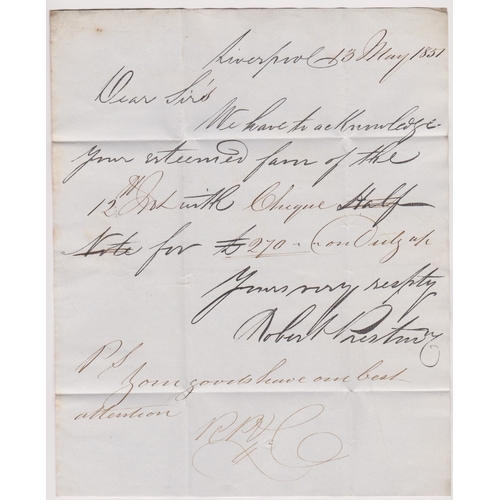 Liverpool 13 May 1851
Dear Sirs
We have to acknowledge
Your esteemed favr of the
12th Inst with Cheque Half
Note for £270 on Duty a/c
Yours very respty
Robert Preston
P S
Your goods have our best
attention
R P & Co